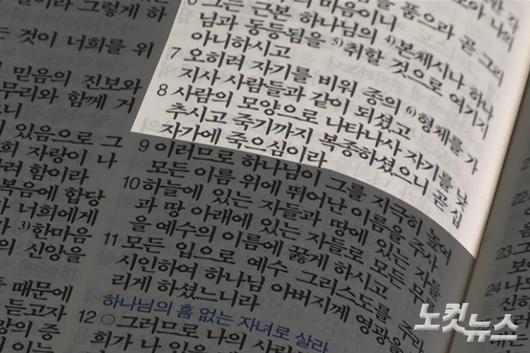 라 그렇게 하
는 것이 너희를 위
믿음의 진보와
무리와 함께 거
있음으로 그
희 자랑이 나
려 함이라
복음에 합당
나 너희에게
3)한마음
의 신앙을
때문에
듣고자
망의 증
마음이니
6 그는 근본 하나님의 4)본체시나 하나
님과 동등됨을 5)취할 것으로 여기지
아니하시고
7 오히려 자기를 비워 종의 6)형체를 가
지사 사람들과 같이 되셨고
8 사람의 모양으로 나타나사 자기를 낮
추시고 죽기까지 복종하셨으니 곧 십
자가에 죽으심이라
9 이러므로 하나님이 그를 지극히 높여
모든 이름 위에 뛰어난 이름을 주사
10 하늘에 있는 자들과 땅에 있는 자들
과 땅 아래에 있는 자들로 모든 무릎
을 예수의 이름에 꿇게 하시고
11 모든 입으로 예수 그리스도를 주라
시인하여 하나님 아버지께 영광을
리게 하셨느니라
하나님의 흠 없는 자녀로 살라
12 ○그러므로 나의 사랑
희가 나 있을
23
24
노컷뉴스